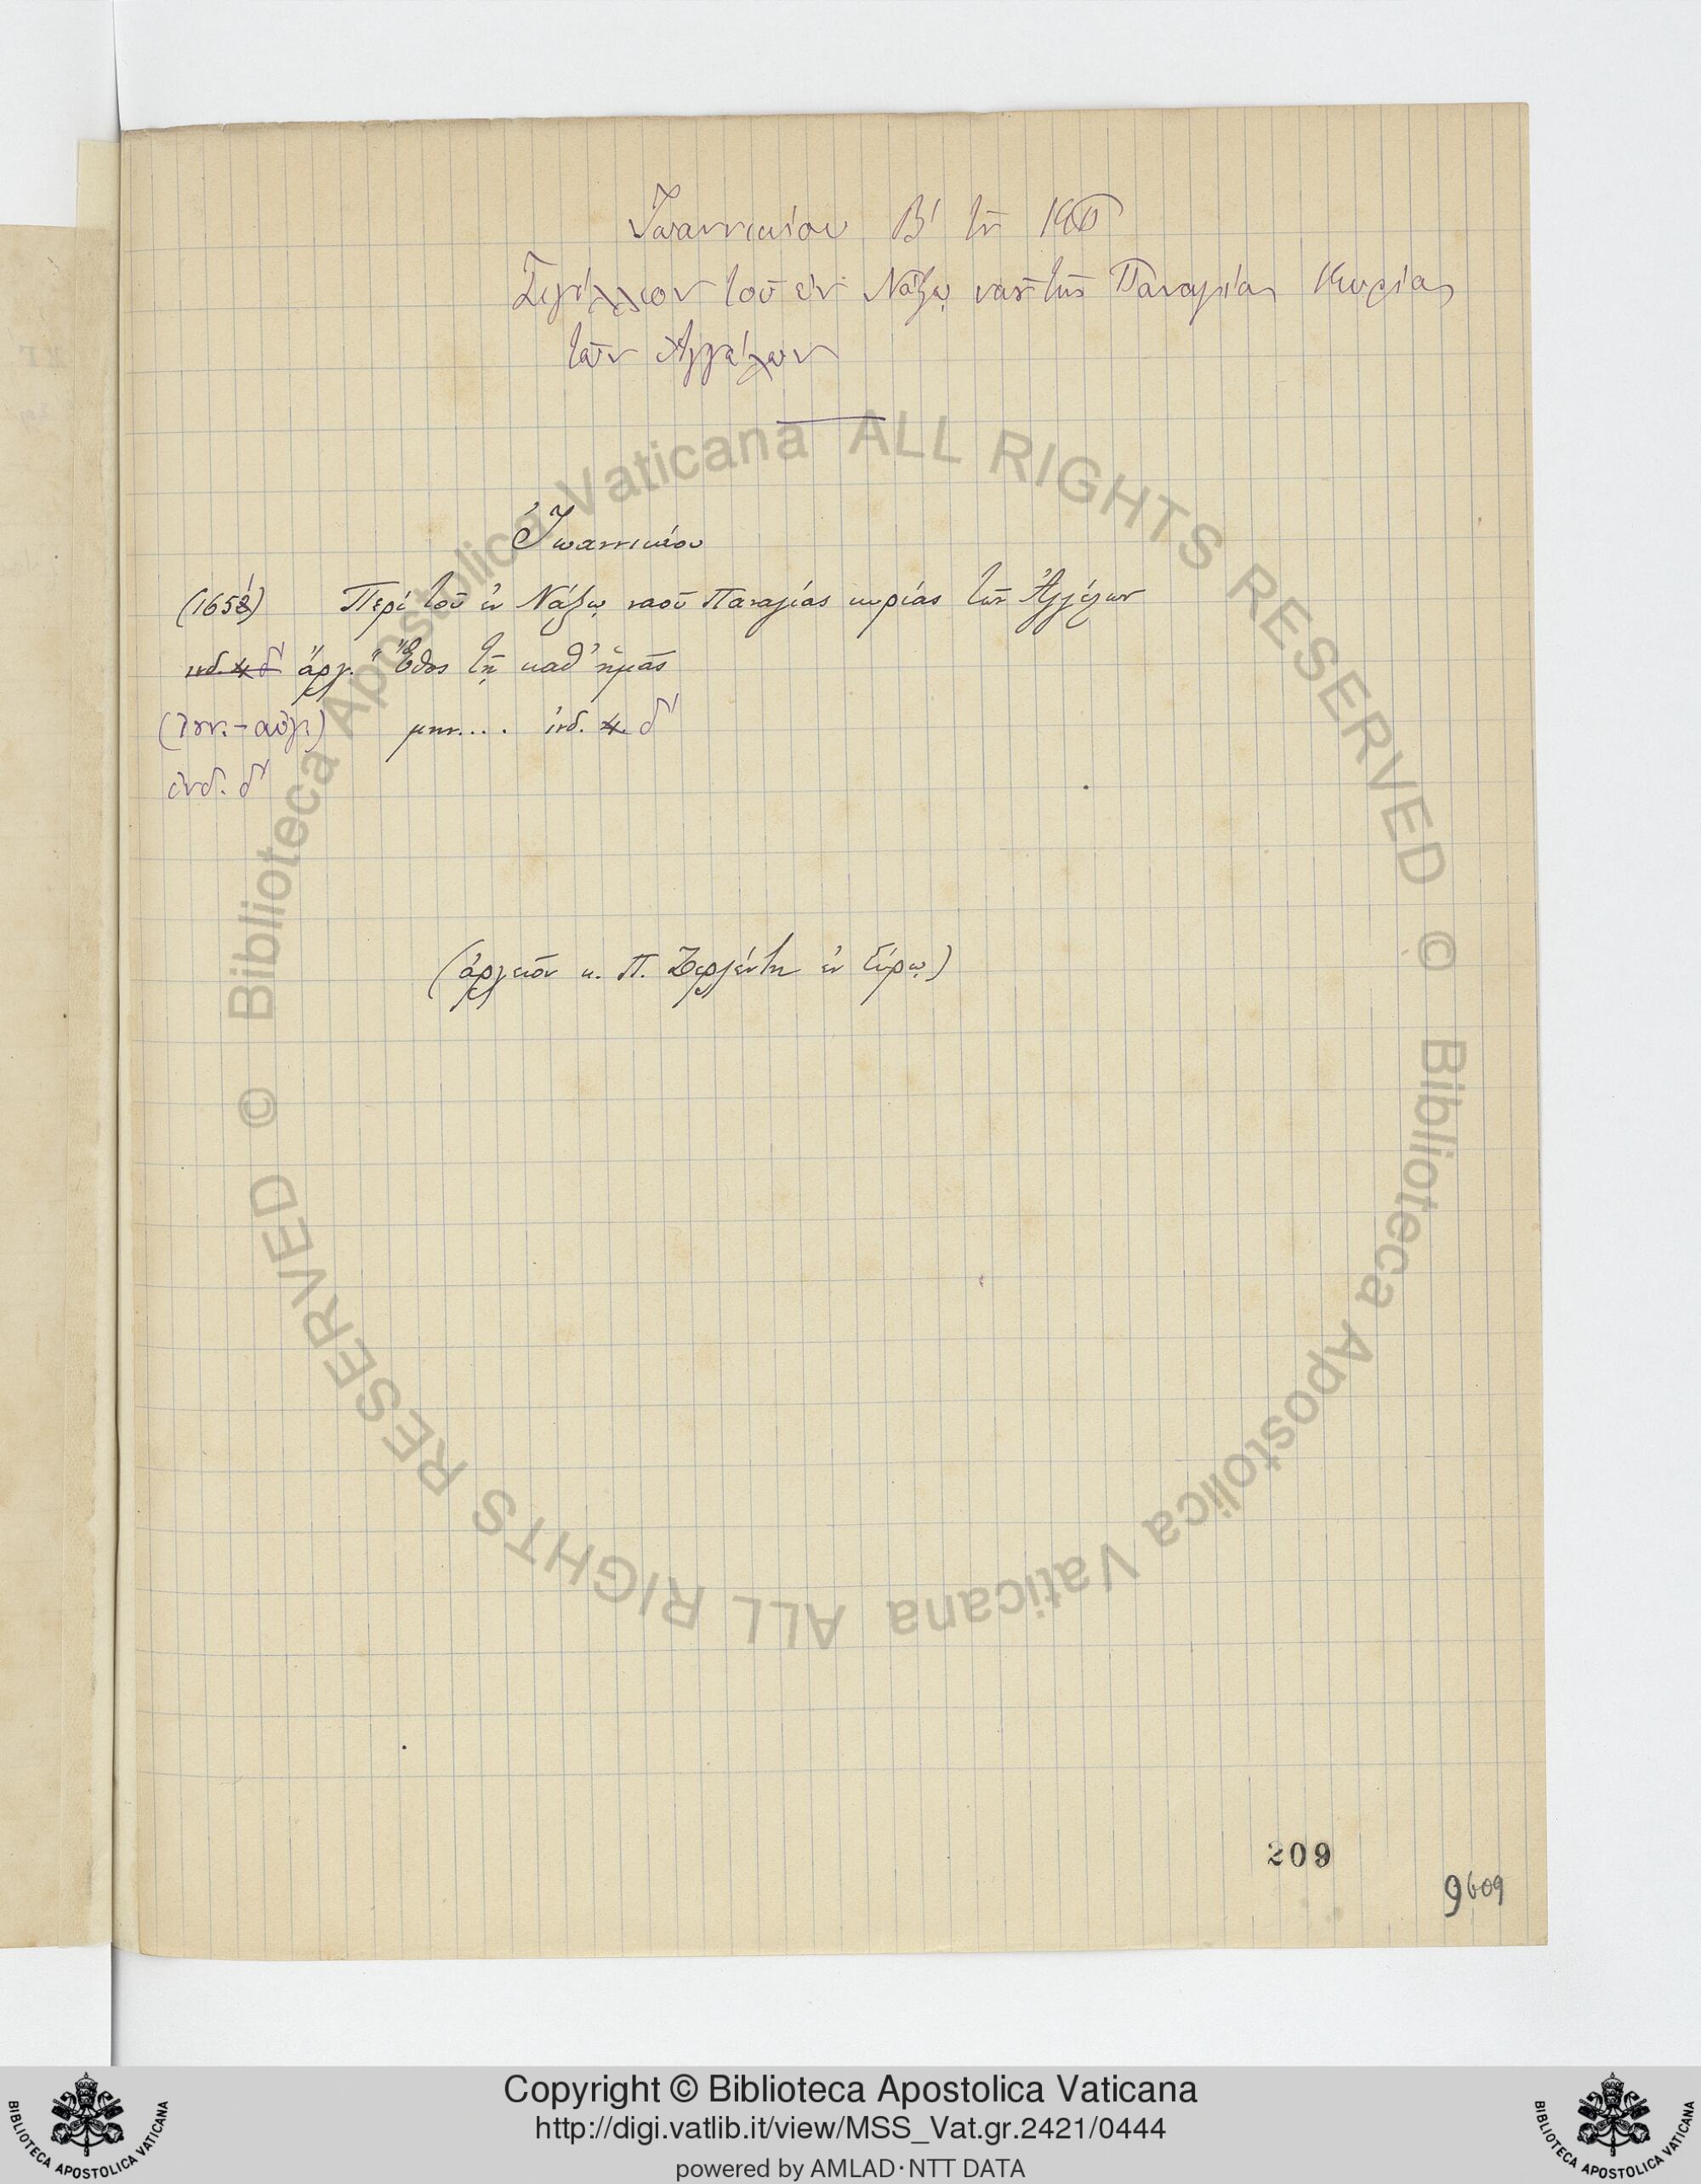 Ἰωαννικίου Β' τοῦ ΚΠ
Σιγίλλιον τοῦ ἐν Νάξῳ ναοῦ τῆς Παναγίας Κυρίας
τῶν Ἀγγέλων
Ἰωαννικίου
(1651) Περὶ τοῦ ἐν Νάξῳ ναοῦ Παναγίας κυρίας τῶν Ἀγγέλων
ινδ. 4 δ' ἄρχ. " Ἔθος τῇ καθ' ἡμᾶς
(Ἰουν.-αὐγ.) μην.... ἰνδ. 4. δ'
ἰνδ. δ'
(ἀρχεῖον κ. Π. Ζερλέντη ἐν Σύρῳ)
209
9609
Copyright © Biblioteca Apostolica Vaticana
http://digi.vatlib.it/view/MSS_Vat.gr.2421/0444
powered by AMLAD·NTT DATA
BIBLIOTECA APOSTOLICA VATICANA
BIBLIOTECA APOSTOLICA VATICANA
© Biblioteca Apostolica Vaticana ALL RIGHTS RESERVED
© Biblioteca Apostolica Vaticana ALL RIGHTS RESERVED